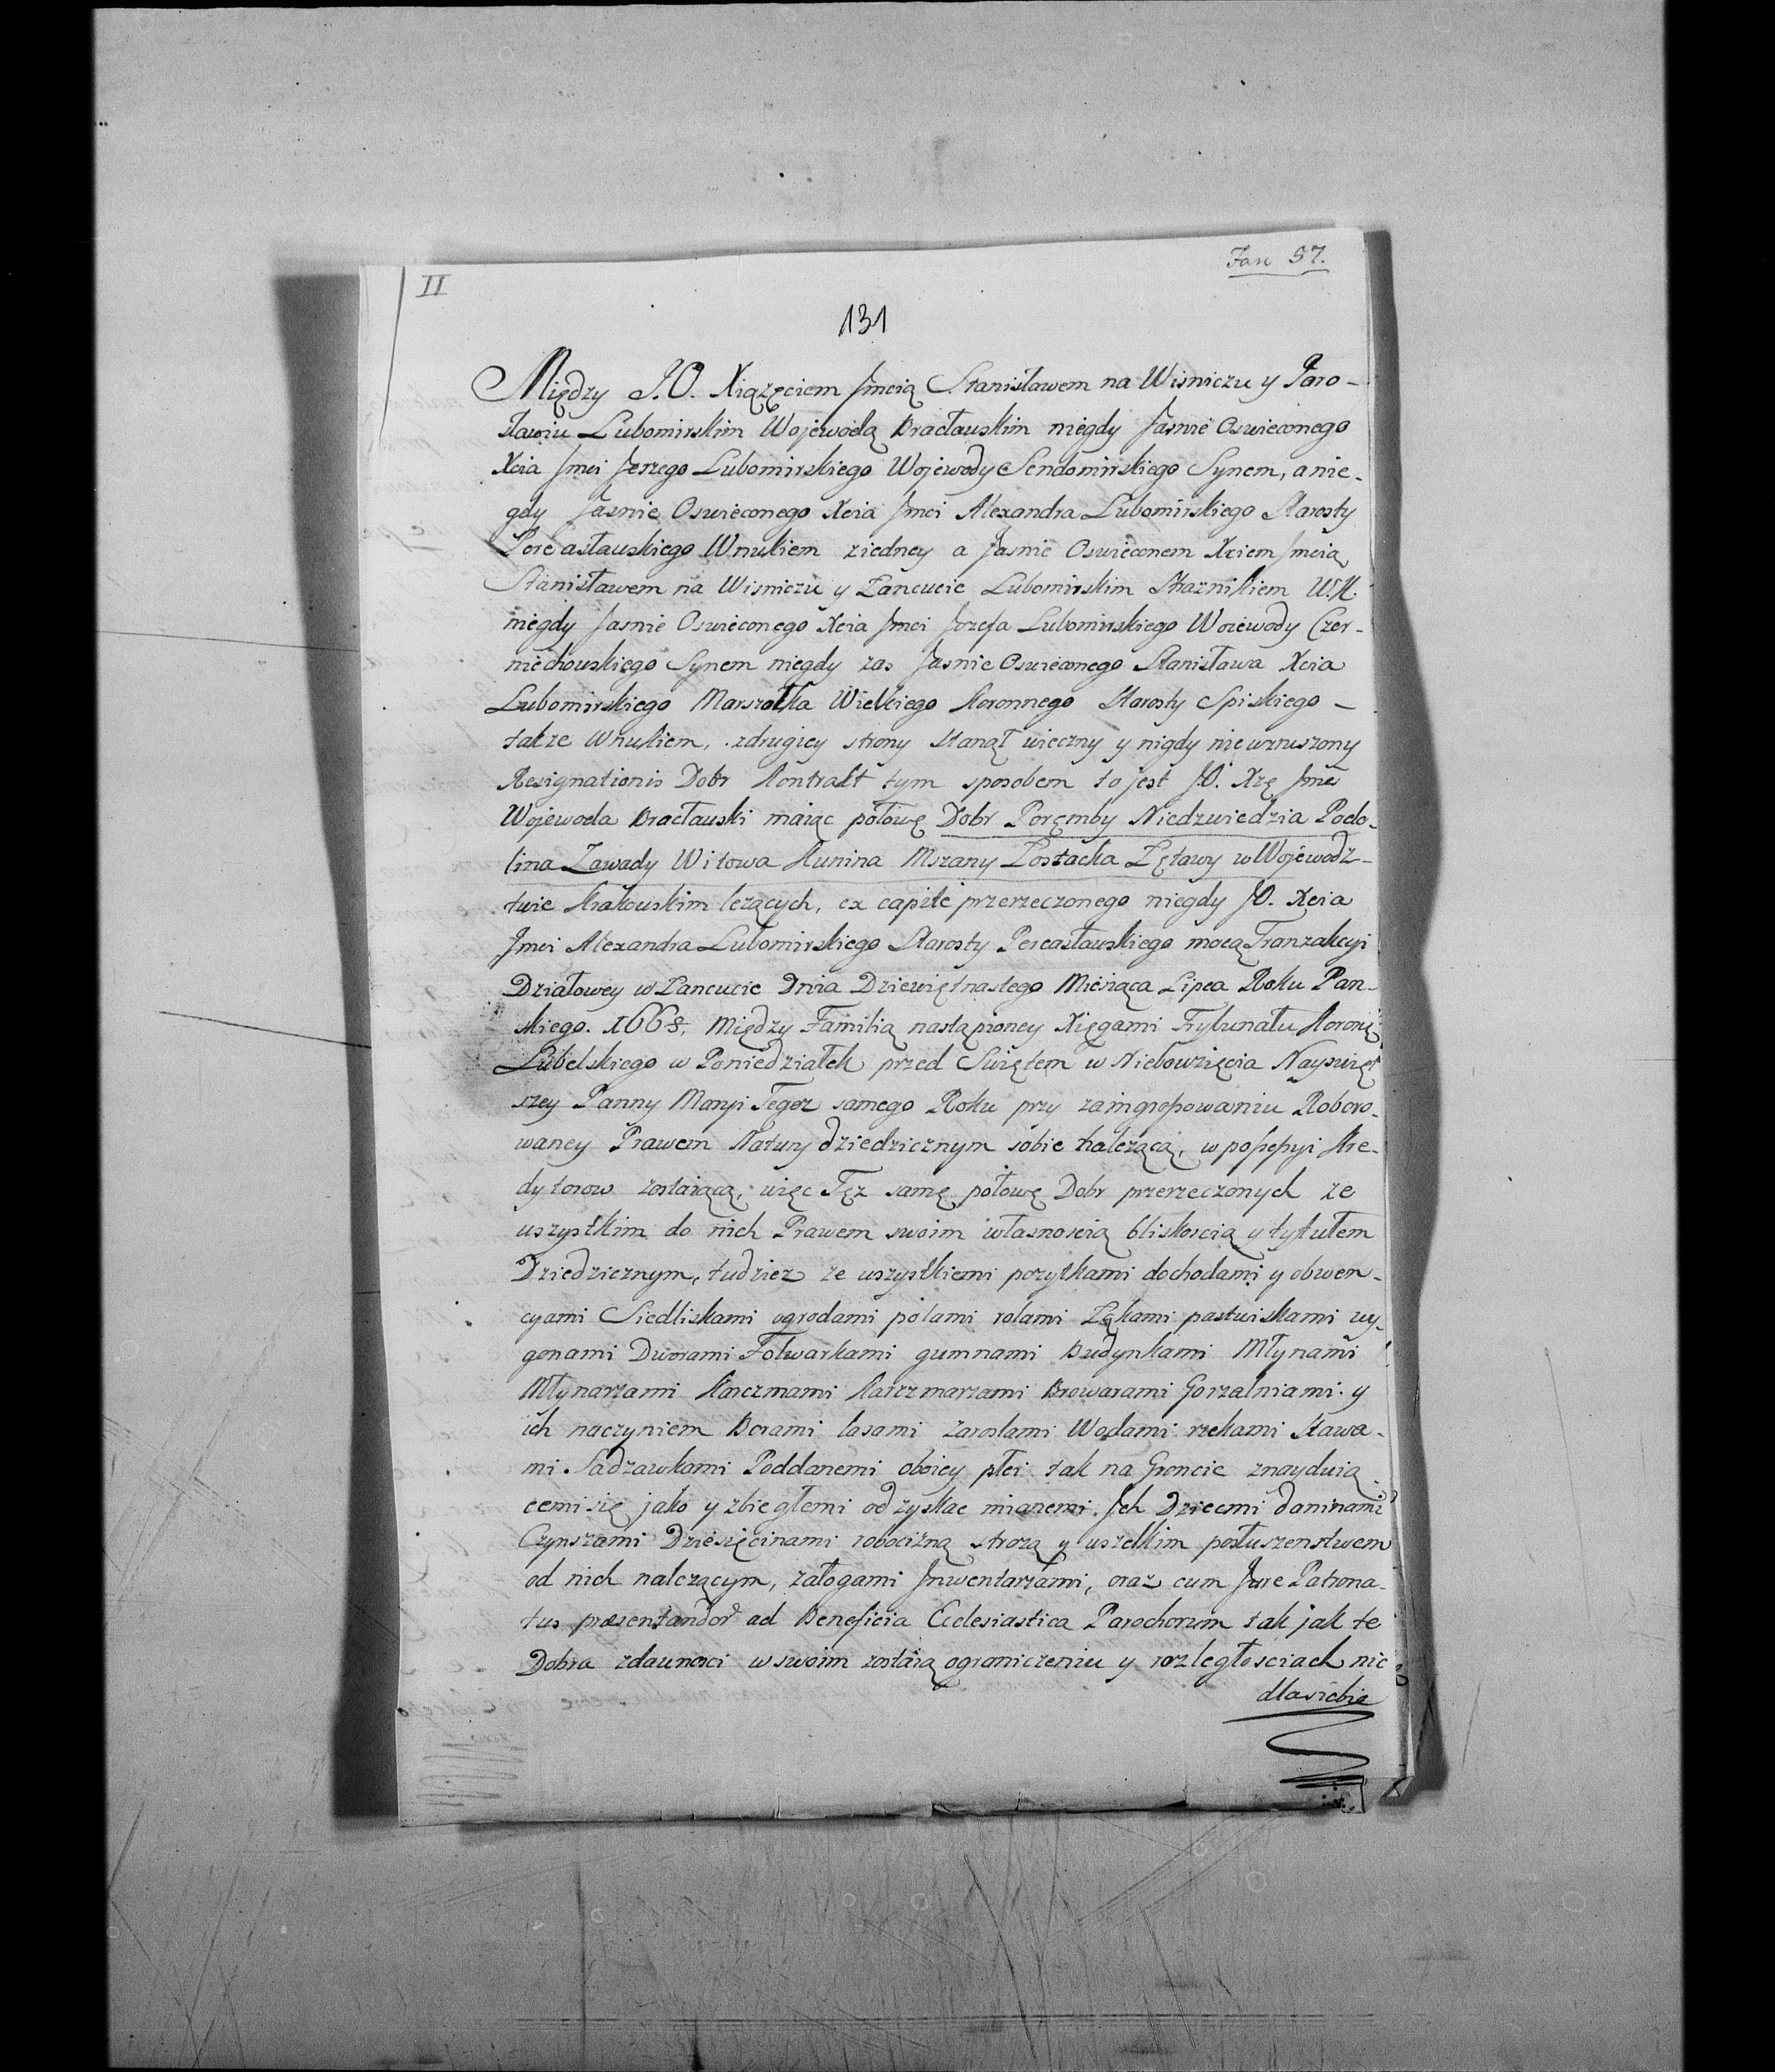 II
Fasc 57.
131
Między J.O. Xiążęciem Jmcią Stanisławem na Wisniczu y Jaro-
sławiu Lubomirskim Wojewodą Bracławskim niegdy Jasnie Oswieconego
Xcia Jmci Jerzego Lubomirskiego Wojewody Sendomirskiego Synem, a nie-
gdy Jasnie Oswieconego Xcia Jmci Alexandra Lubomirskiego Starosty
Pereasławskiego Wnukiem ziedney a Jasnie Oswieconem Xciem Jmcią
Stanisławem na Wisniczu y Łancucie Lubomirskim Strażnikiem W.K.
niegdy Jasnie Oswieconego Xcia Jmci Jozefa Lubomirskiego Woiewody Czer-
niechowskiego Synem niegdy zas Jasnie Oswieconego Stanisława Xcia
Lubomirskiego Marszałka Wielkiego Koronnego Starosty Spiskiego -
także Wnukiem, zdrugiey strony stanął wieczny y nigdy niewzruszony
Resignationis Dobr Kontrakt tym sposobem to jest J.O. Xżę Jmć
Wojewoda Bracławski maiąc połowę Dobr Poręmby Niedzwiedzia Podo-
lina Zawady Witowa Kunina Mszany Łostacka Łętawy w Wojewodz-
twie Krakowskim leżących, ex capite przerzeczonego niegdy J.O. Xcia
Jmci Alexandra Lubomirskiego Starosty Pereasławskiego mocą Tranzakcyi
Działowey w Łancucie Dnia Dziewiętnastego Miesiąca Lipca Roku Pan-
skiego. 1668. Między Familią nastąpioney Xięgami Trybunału Koronẽ
Lubelskiego w Poniedziałek przed Swiętem w Niebowzięcia Nayswięt
szey Panny Maryi Tegoż samego Roku przy zaingrossowaniu Roboro-
waney Prawem Natury dziedzicznym sobie należącą, w possessyi Kre-
dytorow zostaiącą, więc Tęż samę połowę Dobr przerzeczonych ze
wszystkim do nich Prawem swoim własnoscią bliskoscią y tytułem
Dziedzicznym, tudzież ze wszystkiemi pożytkami dochodami y obwen-
cyami Siedliskami ogrodami polami rolami Łąkami pastwiskami wy-
gonami Dworami Folwarkami gumnami Budynkami Młynami
Młynarzami Karczmami Karczmarzami Browarami Gorzalniami y
ich naczyniem Borami lasami zaroslami Wodami rzekami Stawa-
mi Sadzawkami Poddanemi oboiey płci tak na Groncie znayduią
cemi się jako y zbiegłemi odzyskac mianemi. Ich Dziecmi daninami
Czynszami Dziesięcinami robocizną strożą y wszelkim posłuszenstwem
od nich należącym, załogami Jnwentarzami, oraz cum Jure Patrona-
tus præsentandor̃ ad Beneficia Ecclesiastica Parochorum tak jak te
Dobra zdawnosci w swoim zostaią ograniczeniu y rozległosciach nic
dlasiebie